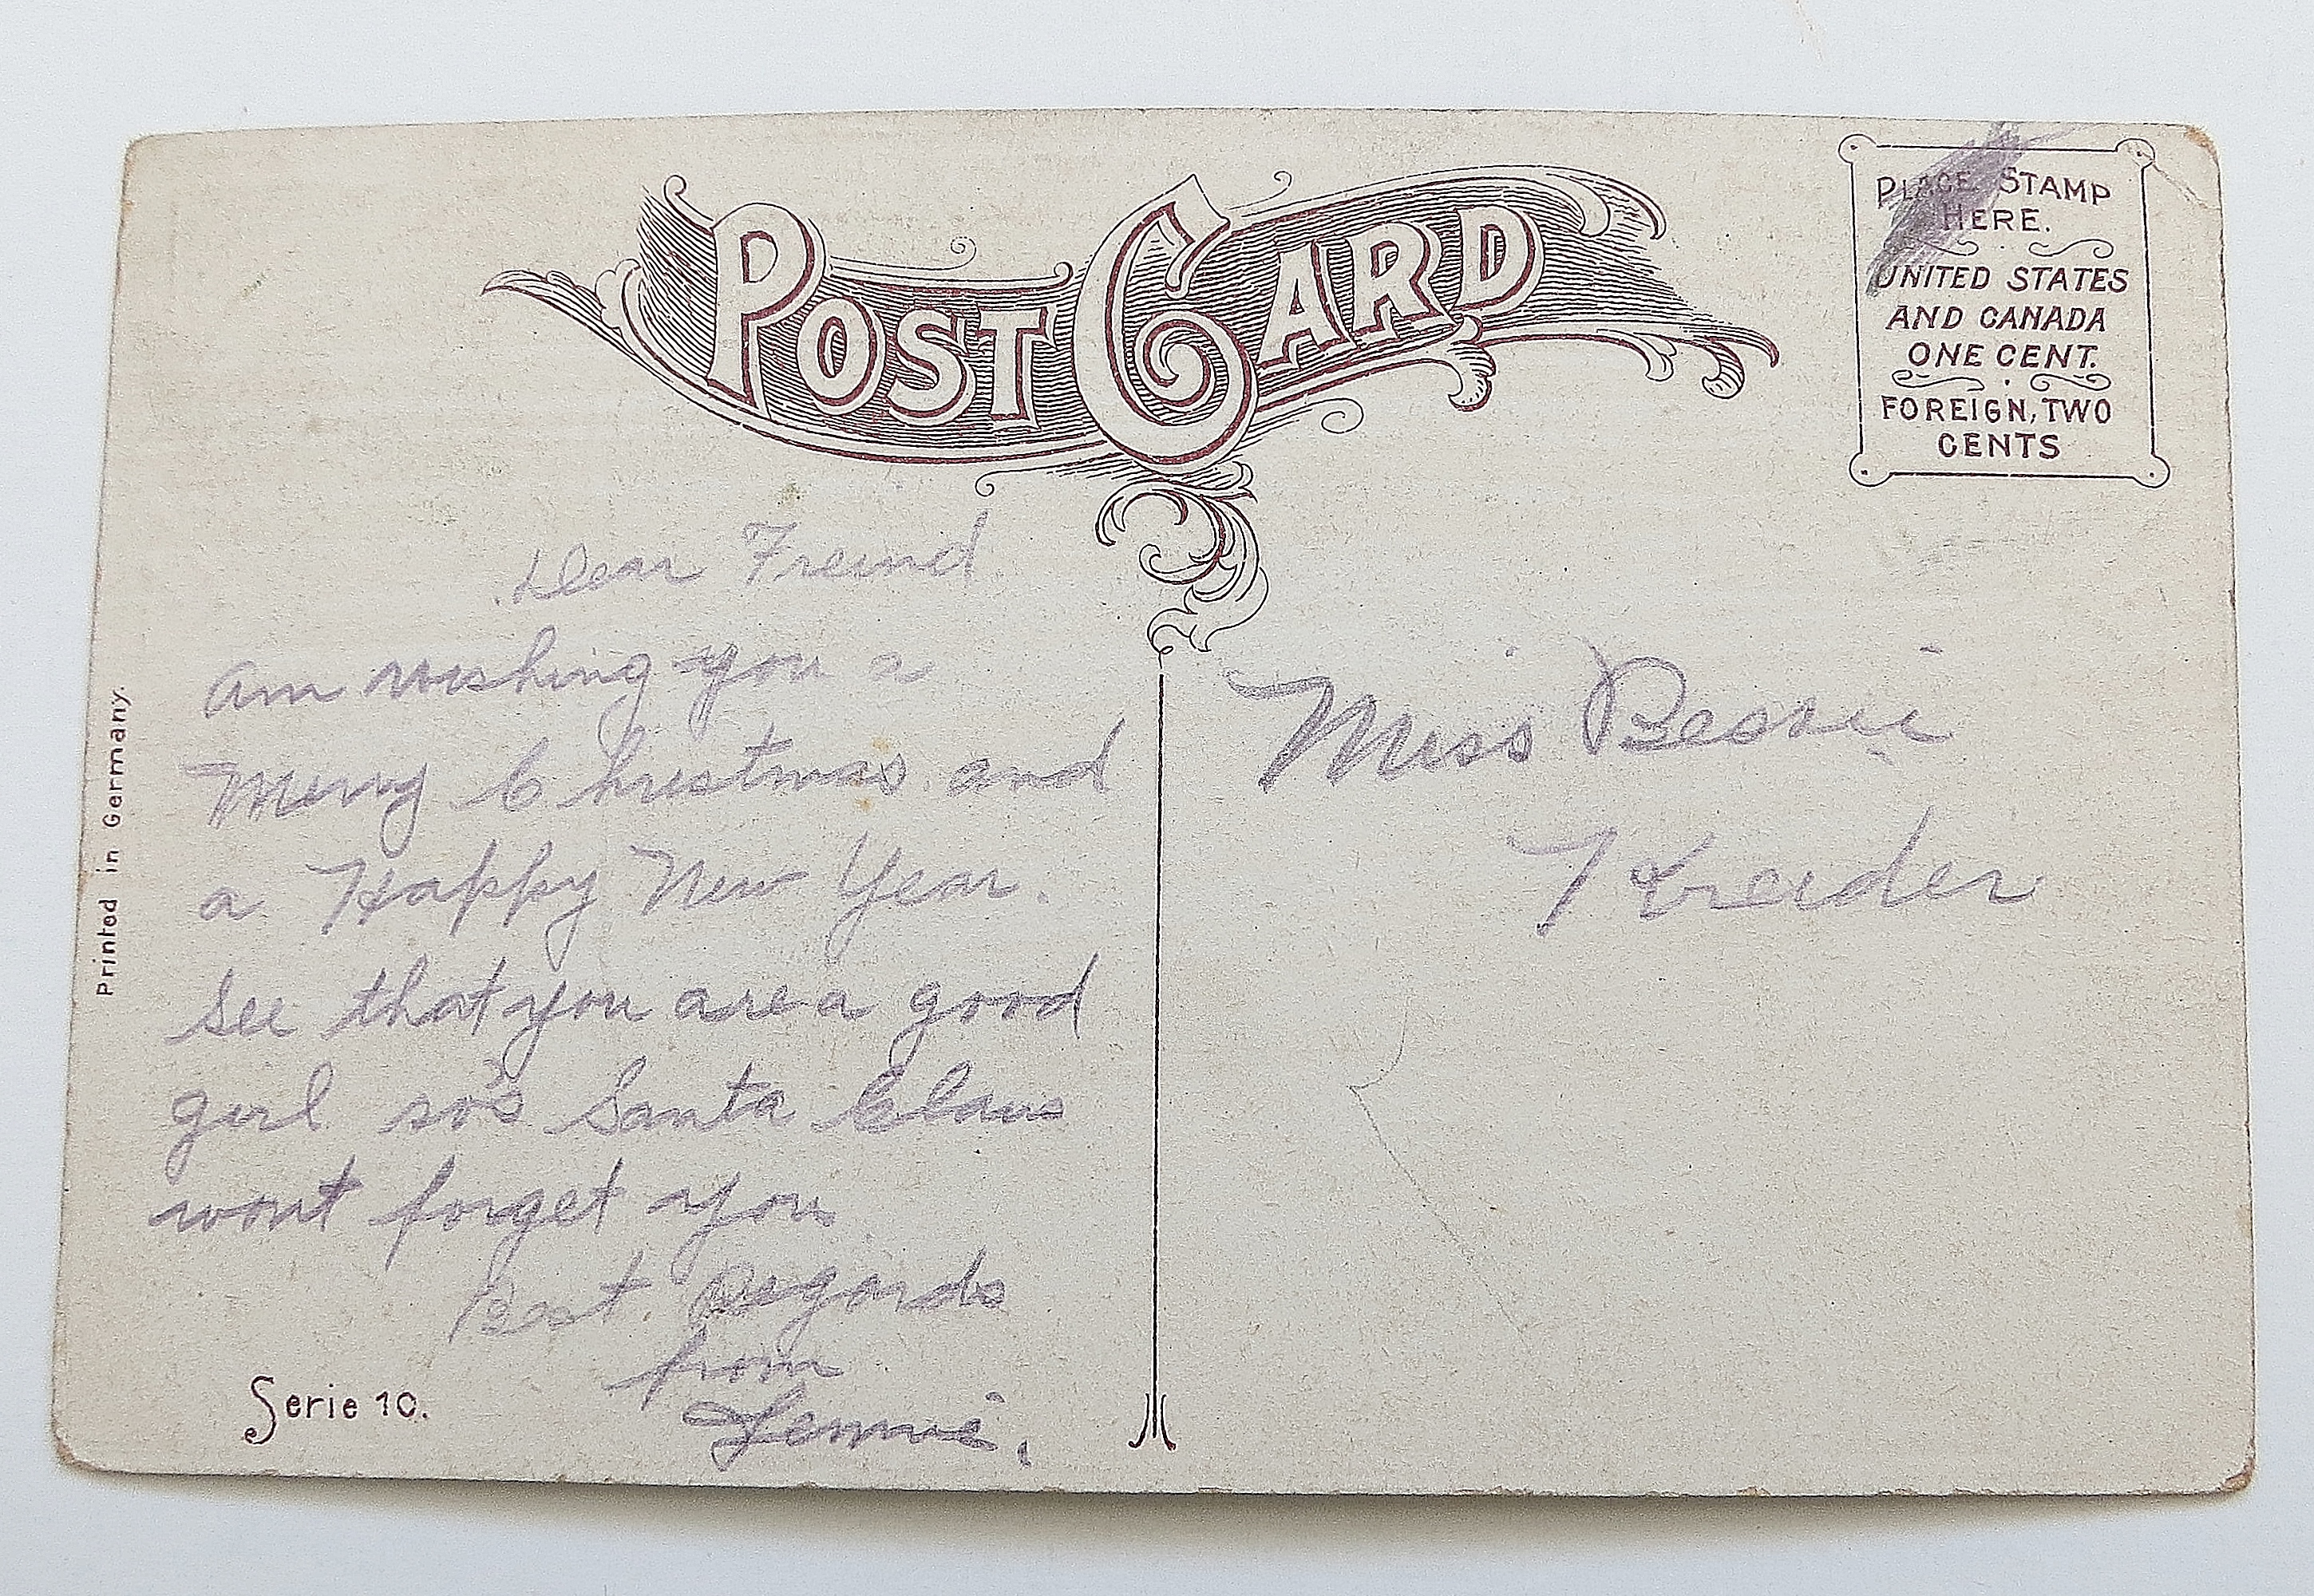 POST CARD
PLACE STAMP
HERE.
UNITED STATES
AND CANADA
ONE CENT.
FOREIGN, TWO
CENTS
Dear Freind
am wishing you a
Merry Christmas and
a Happy New Year.
See that you are a good
girl so's Santa Claus
wont forget you
Best. Regards
from
Miss Bessie
Kreider
Printed in Germany.
Serie 10.